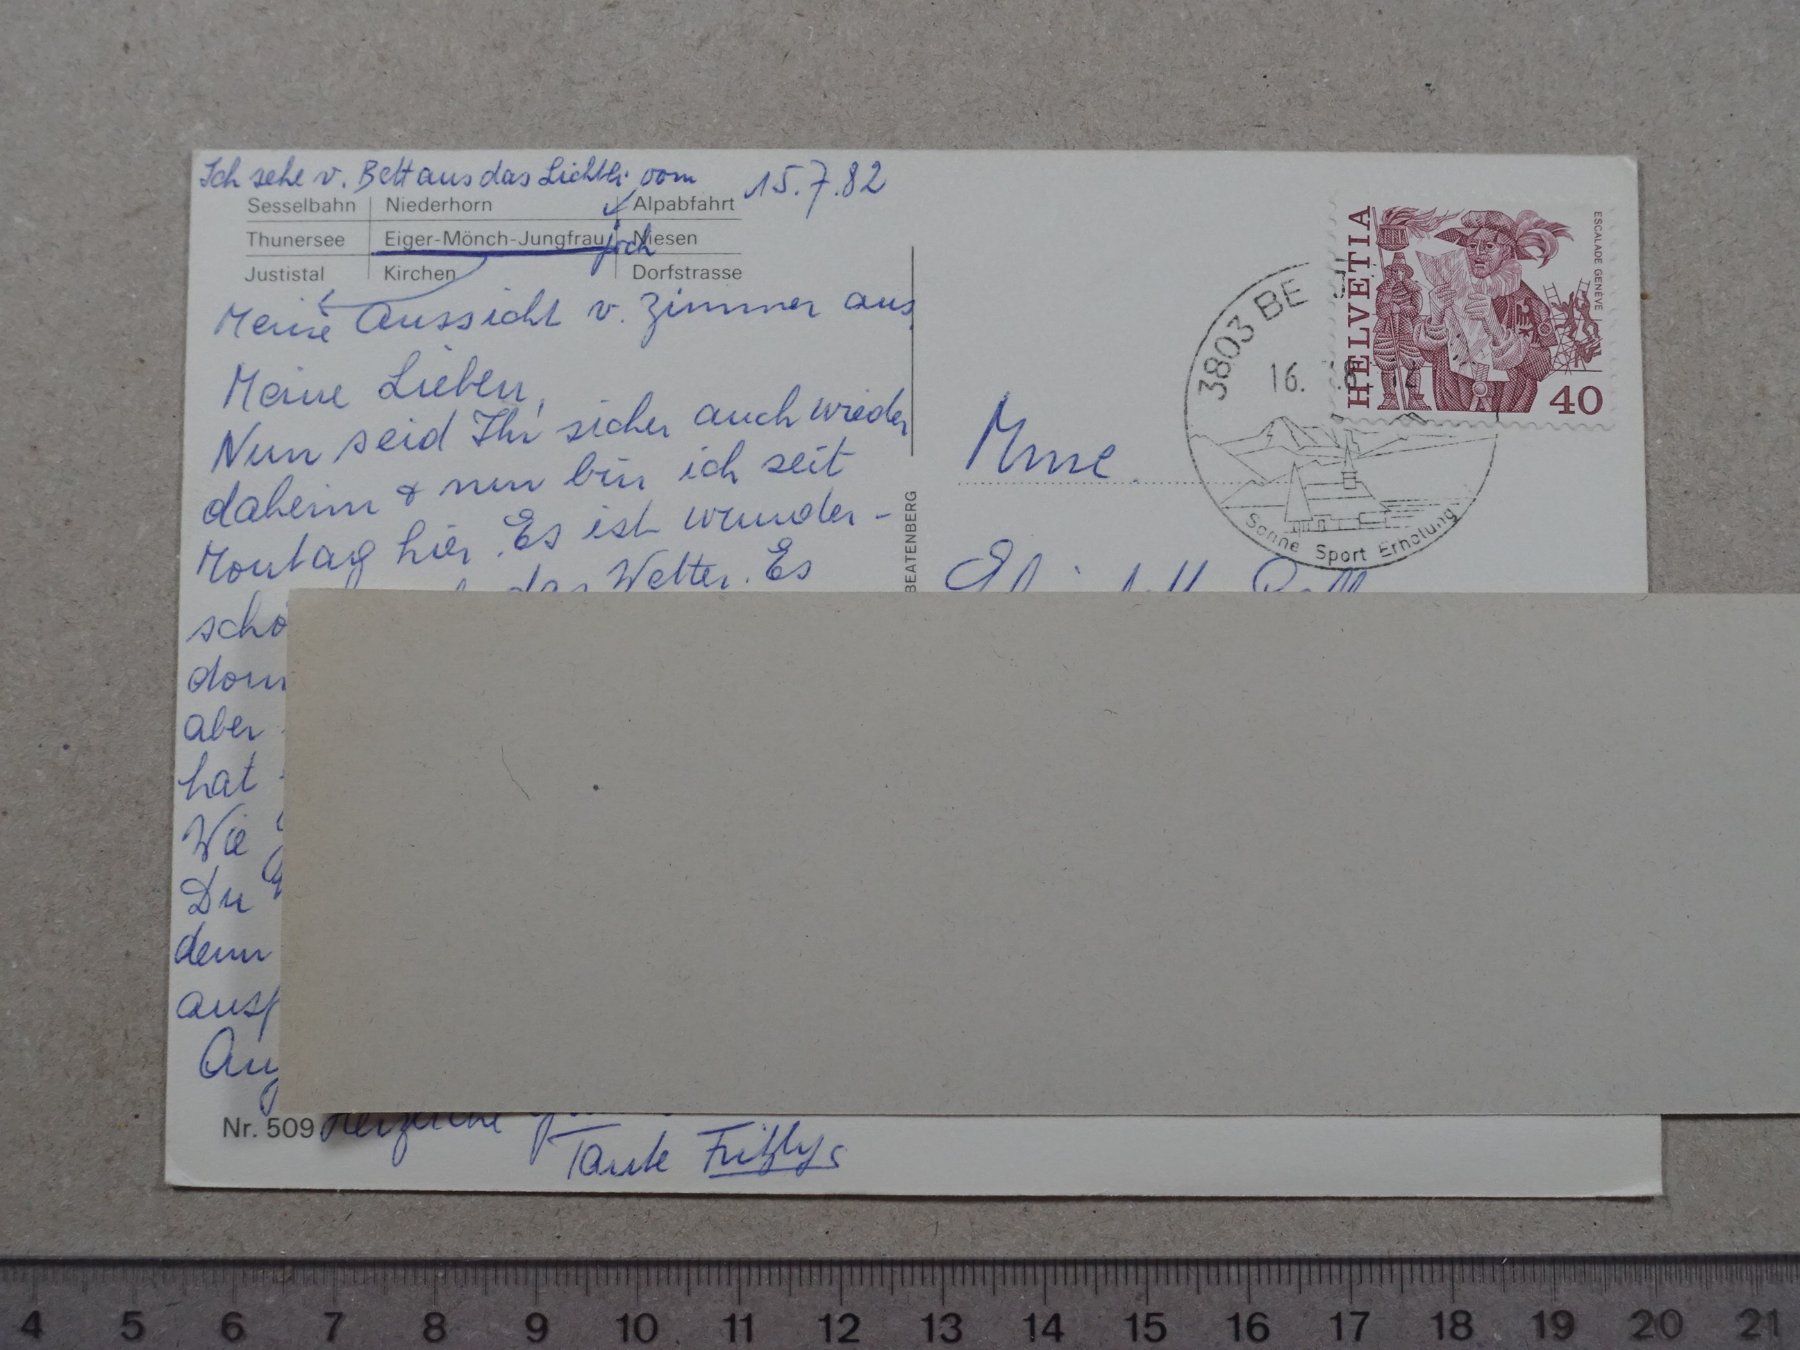 Ich sehe v. Bett aus das Lichtli vom
15.7.82
Sesselbahn Niederhorn Alpabfahrt
Thunersee Eiger-Mönch-Jungfrau joch Niesen
Justistal Kirchen Dorfstrasse
Meine Aussicht v. Zimmer aus
Meine Lieben,
Nun seid Ihr sicher auch wieder
daheim & nun bin ich seit
Montag hier. Es ist wunder-
das Wetter. Es
aber
hat
Wie
Du
denn
Nr. 509 Herzliche
Tante Fritzlys
BEATENBERG
Mme
3803 BE
16.
Sonne Sport Erholung
HELVETIA
ESCALADE GENÈVE
40
4 5 6 7 8 9 10 11 12 13 14 15 16 17 18 19 20 21